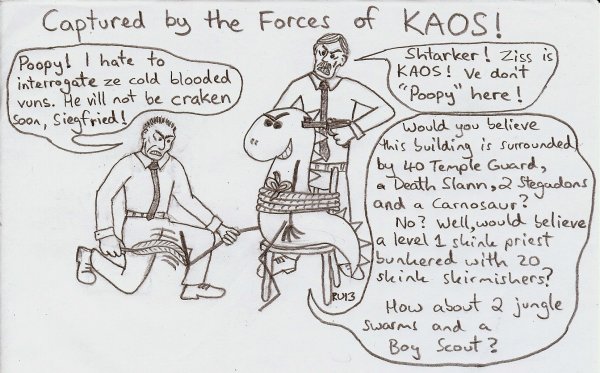 Captured by the Forces of KAOS!
Poopy! I hate to
interrogate ze cold blooded
vuns. He vill not be craken
soon, Siegfried!
Shtarker! Ziss is
KAOS! Ve don't
"Poopy" here!
Would you believe
this building is surrounded
by 40 Temple Guard,
a Death Slann, 2 Stegadons
and a Carnosaur?
No? Well, would believe
a level 1 skink priest
bunkered with 20
skink skirmishers?
How about 2 jungle
swarms and a
Boy Scout?
RU13